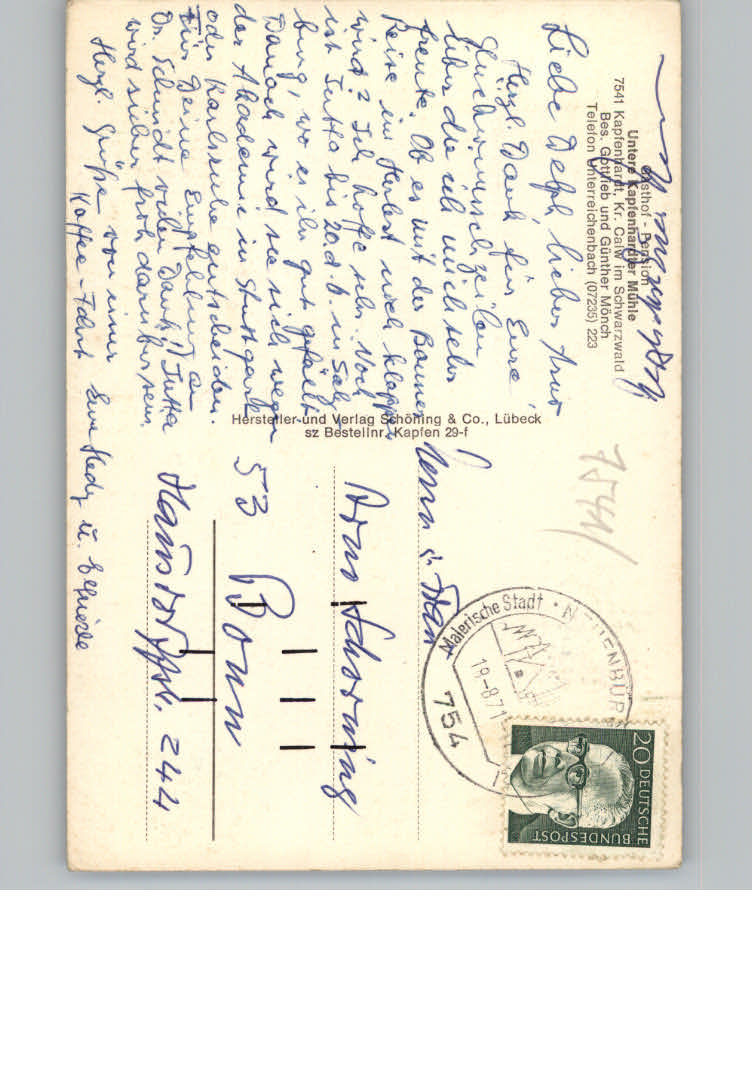 Gasthof - Pension
Untere Kapfenhardter Mühle
7541 Kapfenhardt, Kr. Calw im Schwarzwald
Bes. Gottlieb und Günther Mönch
Telefon Unterreichenbach (07235) 223
Liebe Delph, lieber Arno
Herzl. Dank für Eure
Glückwunschzeilen
über die ich mich sehr
freute. Ob es mit der Bonner
Reise im Herbst noch klappen
wird? Ich hoffe sehr. Noch
ist Jutta bis 20. d. M. in Salz
burg, wo es ihr gut gefällt
Danach wird sie sich wegen
der Akademie in Stuttgart
oder Karlsruhe entscheiden.
Für Deine Empfehlung an
Dr. Schmidt vielen Dank! Jutta
wird sicher froh darüber sein.
Herzl. Grüße von einer
Kaffee-Fahrt Eure Hedy u. Elfriede
Hersteller und Verlag Schöning & Co., Lübeck
sz Bestellnr. Kapfen 29-f
7541
Malerische Stadt · NEUENBÜRG
19-8.71
754
20 DEUTSCHE
BUNDESPOST
Herrn u. Frau
Arno Schorning
53 Bonn
Hausdorffstr. 244